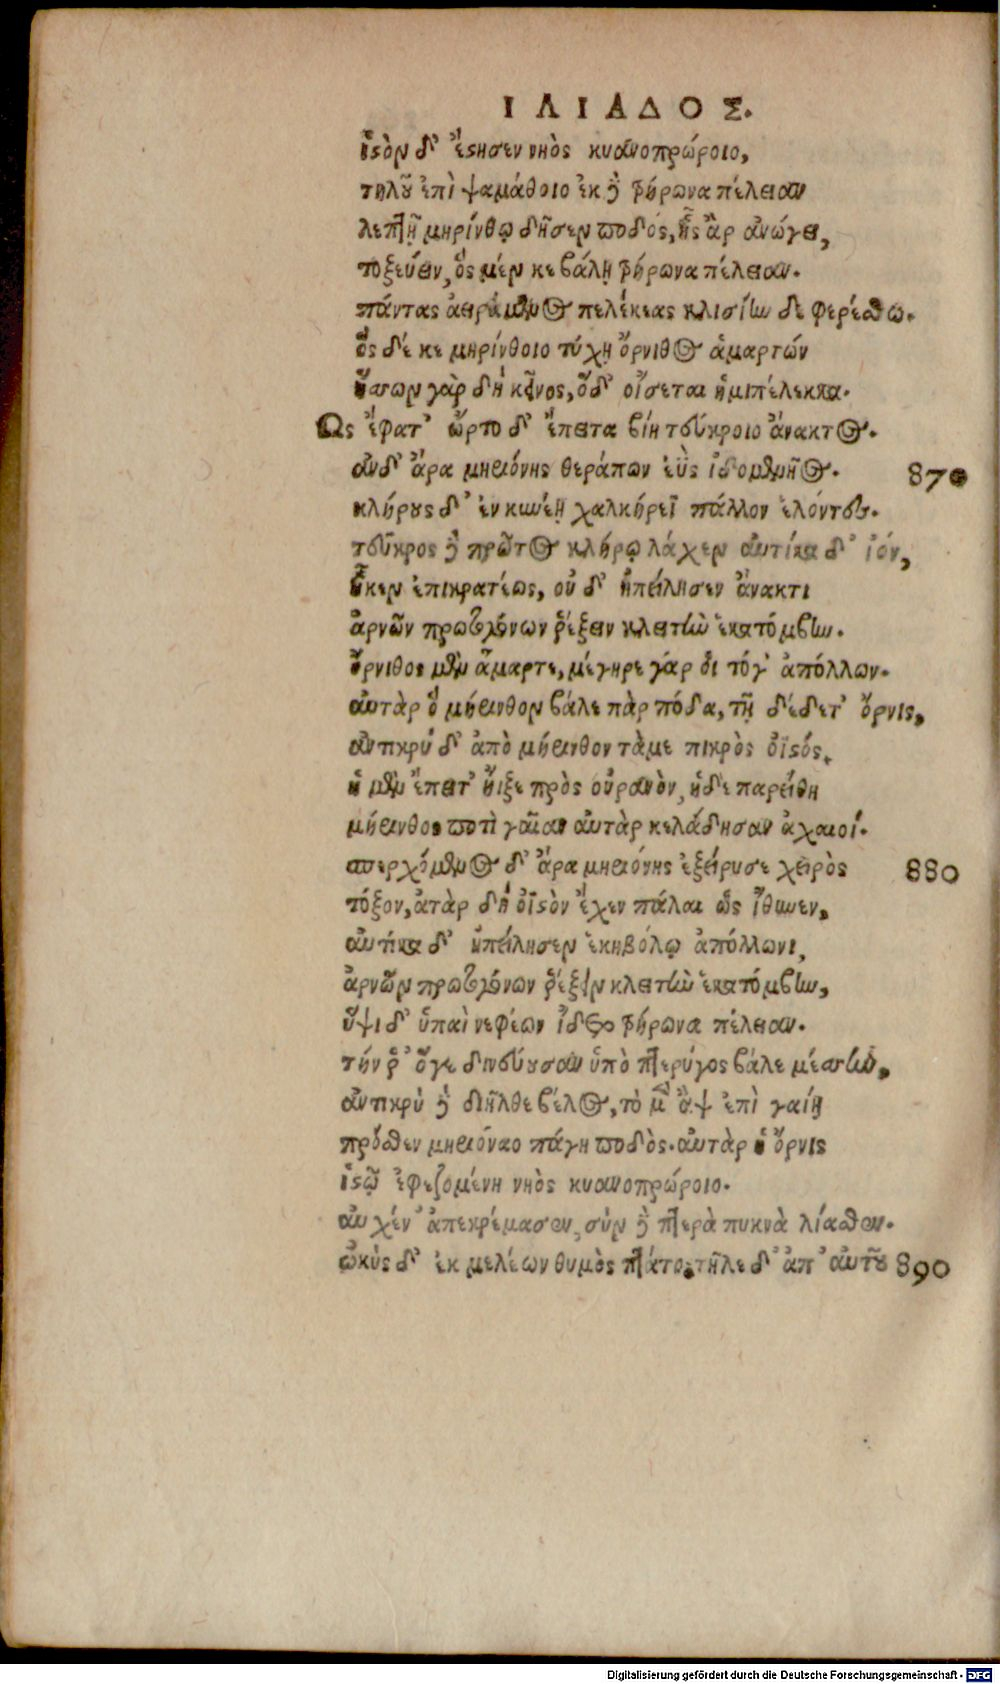 ΙΛΙΑΔΟΣ.
ἱστὸν δ' ἔστησεν νηὸς κυανοπρώροιο,
τηλοῦ ἐπὶ ψαμάθοιο ἐκ δὲ τρήρωνα πέλειαν
λεπτῇ μηρίνθῳ δῆσεν ποδός, ἧς ἂρ ἀνώγει,
τοξεύειν, ὃς μέν κε βάλῃ τρήρωνα πέλειαν.
πάντας ἀειράμενος πελέκεας κλισίην δὲ φερέσθω.
ὃς δέ κε μηρίνθοιο τύχῃ ὄρνιθος ἁμαρτών
ἥσσων γὰρ δὴ κεῖνος, ὅδ' οἴσεται ἡμιπέλεκκα.
Ὣς ἔφατ' ὦρτο δ' ἔπειτα βίη τεύκροιο ἄνακτος.
ἂν δ' ἄρα μηειόνης θεράπων ἐῢς ἰδομενῆος. 870
κλήρους δ' ἐν κυνέῃ χαλκήρεϊ πάλλον ἑλόντες.
τεῦκρος δὲ πρῶτος κλήρῳ λάχεν αὐτίκα δ' ἰόν,
ἧκεν ἐπικρατέως, οὐ δ' ἠπείλησεν ἄνακτι
ἀρνῶν πρωτογόνων ῥέξειν κλειτὴν ἑκατόμβην.
ὄρνιθος μὲν ἅμαρτε, μέγηρε γάρ οἱ τόγ' ἀπόλλων.
αὐτὰρ ὃ μήρινθον βάλε πὰρ πόδα, τῇ δέδετ' ὄρνις,
ἀντικρύ δ' ἀπὸ μήρινθον τάμε πικρὸς ὀϊστός,
ἡ μὲν ἔπειτ' ἤιξε πρὸς οὐρανὸν, ἡ δὲ παρείθη
μήρινθος ποτὶ γαῖαν αὐτὰρ κελάδησαν ἀχαιοί.
σπερχόμενος δ' ἄρα μηειόνης ἐξείρυσε χειρὸς 880
τόξον, ἀτὰρ δὴ ὀϊστὸν ἔχεν πάλαι ὡς ἴθυνεν,
αὐτίκα δ' ἠπείλησεν ἑκηβόλῳ ἀπόλλωνι,
ἀρνῶν πρωτογόνων ῥέξειν κλειτὴν ἑκατόμβην,
ὕψι δ' ὑπαὶ νεφέων ἴδετο τρήρωνα πέλειαν.
τήν ῥ' ὅγε δινεύουσαν ὑπὸ πτέρυγος βάλε μέσσην,
ἀντικρὺ δὲ διῆλθε βέλος, τὸ μὲν ἂψ ἐπὶ γαίῃ
πρόσθεν μηειόναο πάγη ποδὸς. αὐτὰρ ἡ ὄρνις
ἱστῷ ἐφεζομένη νηὸς κυανοπρώροιο.
αὐχέν' ἀπεκρέμασεν, σὺν δὲ πτερὰ πυκνὰ λίασθεν.
ὠκὺς δ' ἐκ μελέων θυμὸς πτάτο, τῆλε δ' ἀπ' αὐτοῦ 890
Digitalisierung gefördert durch die Deutsche Forschungsgemeinschaft - DFG